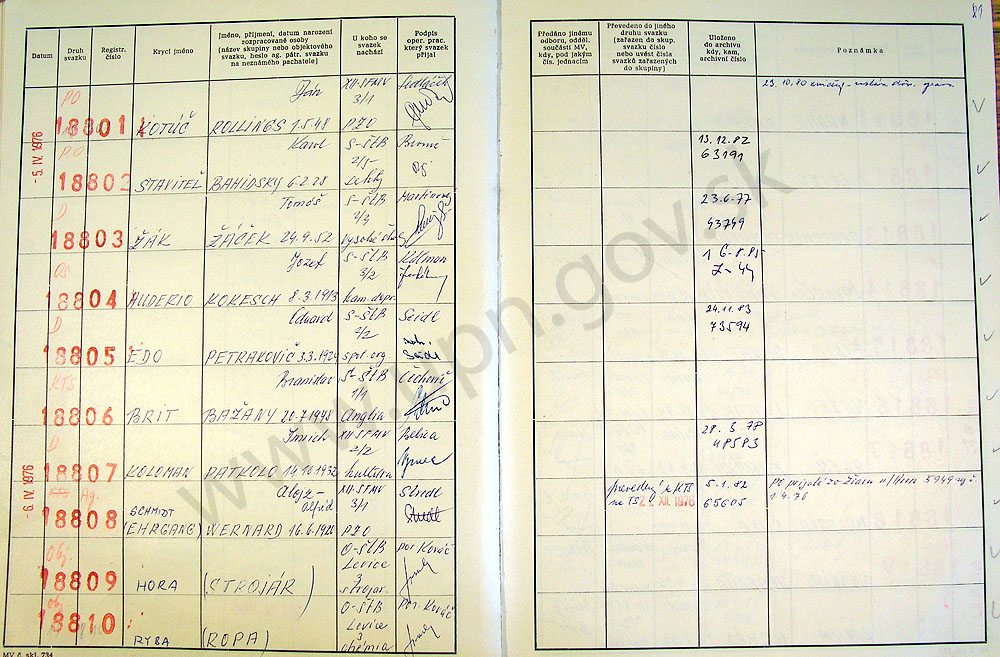 21
Datum
Druh svazku
Registr. číslo
Krycí jméno
Jméno, příjmení, datum narození
rozpracované osoby
(název skupiny nebo objektového
svazku, heslo ag. pátr. svazku
na neznámého pachatele)
U koho se
svazek
nachází
Podpis
oper. prac.
který svazek
přijal
Předáno jinému
odboru, odděl.
součásti MV,
kdy, pod jakým
čís. jednacím
Převedeno do jiného
druhu svazku
(zařazen do skup.
svazku číslo
nebo uvést čísla
svazků zařazených
do skupiny)
Uloženo
do archivu
kdy, kam,
archivní číslo
Poznámka
- 5. IV. 1976
PO
18801
KOTÚČ
Ján
ROLLINGS 1.5.48
XII-SFMV
3/1
PZO
Sedláček
23.10.80
PO
18802
STAVITEĽ
Karol
BAHIDSKY 6.2.28
S-ŠtB
2/5
13.12.82
63191
D
18803
ŽÁK
Tomáš
ŽÁČEK 24.9.52
S-ŠtB
2/3
23.6.77
43749
OS
18804
HUDERIO
Jozef
KOKESCH 8.3.1913
S-ŠtB
3/2
16.8.85
Z-44
D
18805
EDO
Eduard
PETRAKOVIČ 3.3.1924
S-ŠtB
2/2
Seidl
24.11.83
73594
KTS
18806
BRIT
Branislav
BAŽÁNY 20.7.1948
S-ŠtB
1/1
Anglia
- 6. IV. 1976
D
18807
KOLOMAN
Imrich
PATKOLO 14.10.1932
XII-SFMV
2/2
kultúra
28.3.78
48583
KTS Ag.
18808
SCHMIDT
(EHRGANG)
Alojz-
Alfréd
WERNARD 16.6.1920
XII-SFMV
3/1
PZO
prevedený z KTS
na TS 2 XII. 1976
5.1.82
65605
1.4.76
Obj.
18809
HORA
(STROJÁR)
O-ŠtB
Levice
3
strojár.
por. Kováč
Obj.
18810
RYBA
(ROPA)
O-ŠtB
Levice
3
chémia
por. Kováč
MV č. skl. 734
www.upn.gov.sk